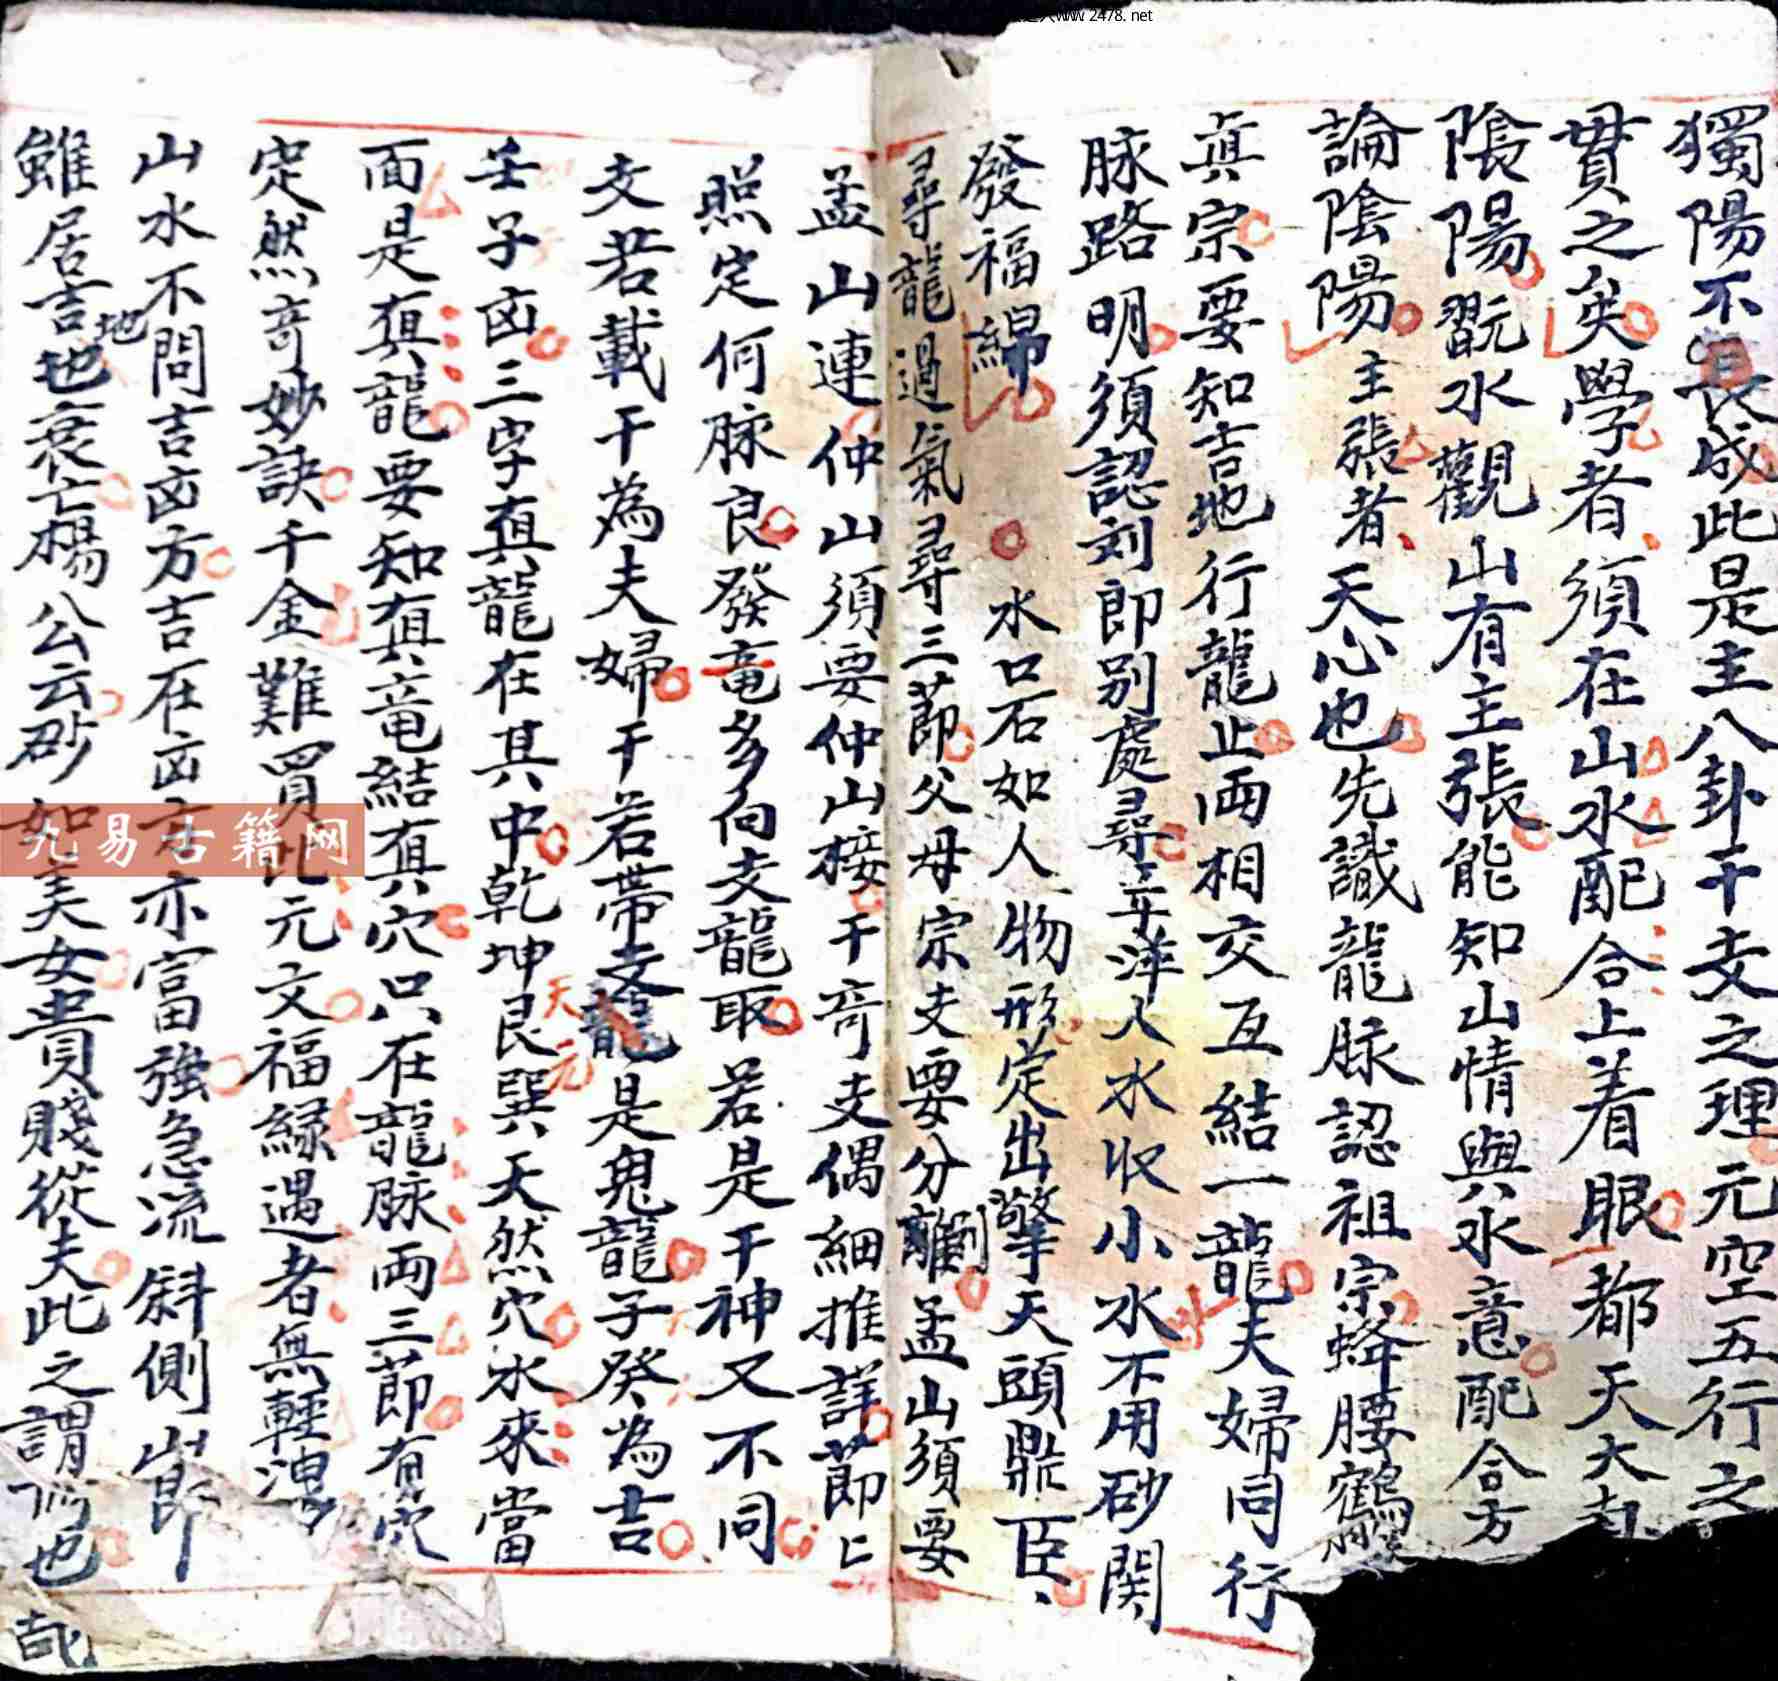 獨陽不長成此是主八卦干支之理元空五行之
貫之矣學者須在山水配合上着眼都天大
陰陽翫水觀山有主張能知山情與水意配合方
論陰陽主張者天心也先識龍脉認祖宗蜂腰鶴膝
眞宗要知吉地行龍止両相交互結一龍夫婦同行
脉路明須認刘即别處尋平洋入水收小水不用砂関
發福綿 水口石如人物形定出擎天頭鼎臣
尋龍過氣尋三莭父母宗支要分離孟山須要
孟山連仲山須要仲山接干竒支偶細推詳莭〻
照定何脉良發竜多向支龍取若是干神又不同
支若載干為夫婦干若帶支龍是鬼龍子癸為吉
壬子凶三字真龍在其中乾坤艮巽天然穴水來當
天元
面是真龍要知真竜結真穴只在龍脉両三莭有穴
定然竒妙訣千金難買此元文福緑遇者無輕洩
山水不問吉凶方吉在凶方亦富強急流斜側山即
雖居吉地也衰亡楊公云砂如美女貴賤從夫此之謂也
哉
九易古籍网
www.2478.net